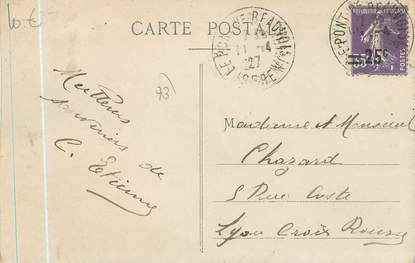 10 €
CARTE POSTALE
LE PONT DE BEAUVOISIN
11 -4
27
ISERE
LE PONT DE BEAUVOISIN
25c
73
Meilleurs
souvenirs de
C. Etienne
Madame et Monsieur
Chazard
5 Rue Coste
Lyon Croix Rousse